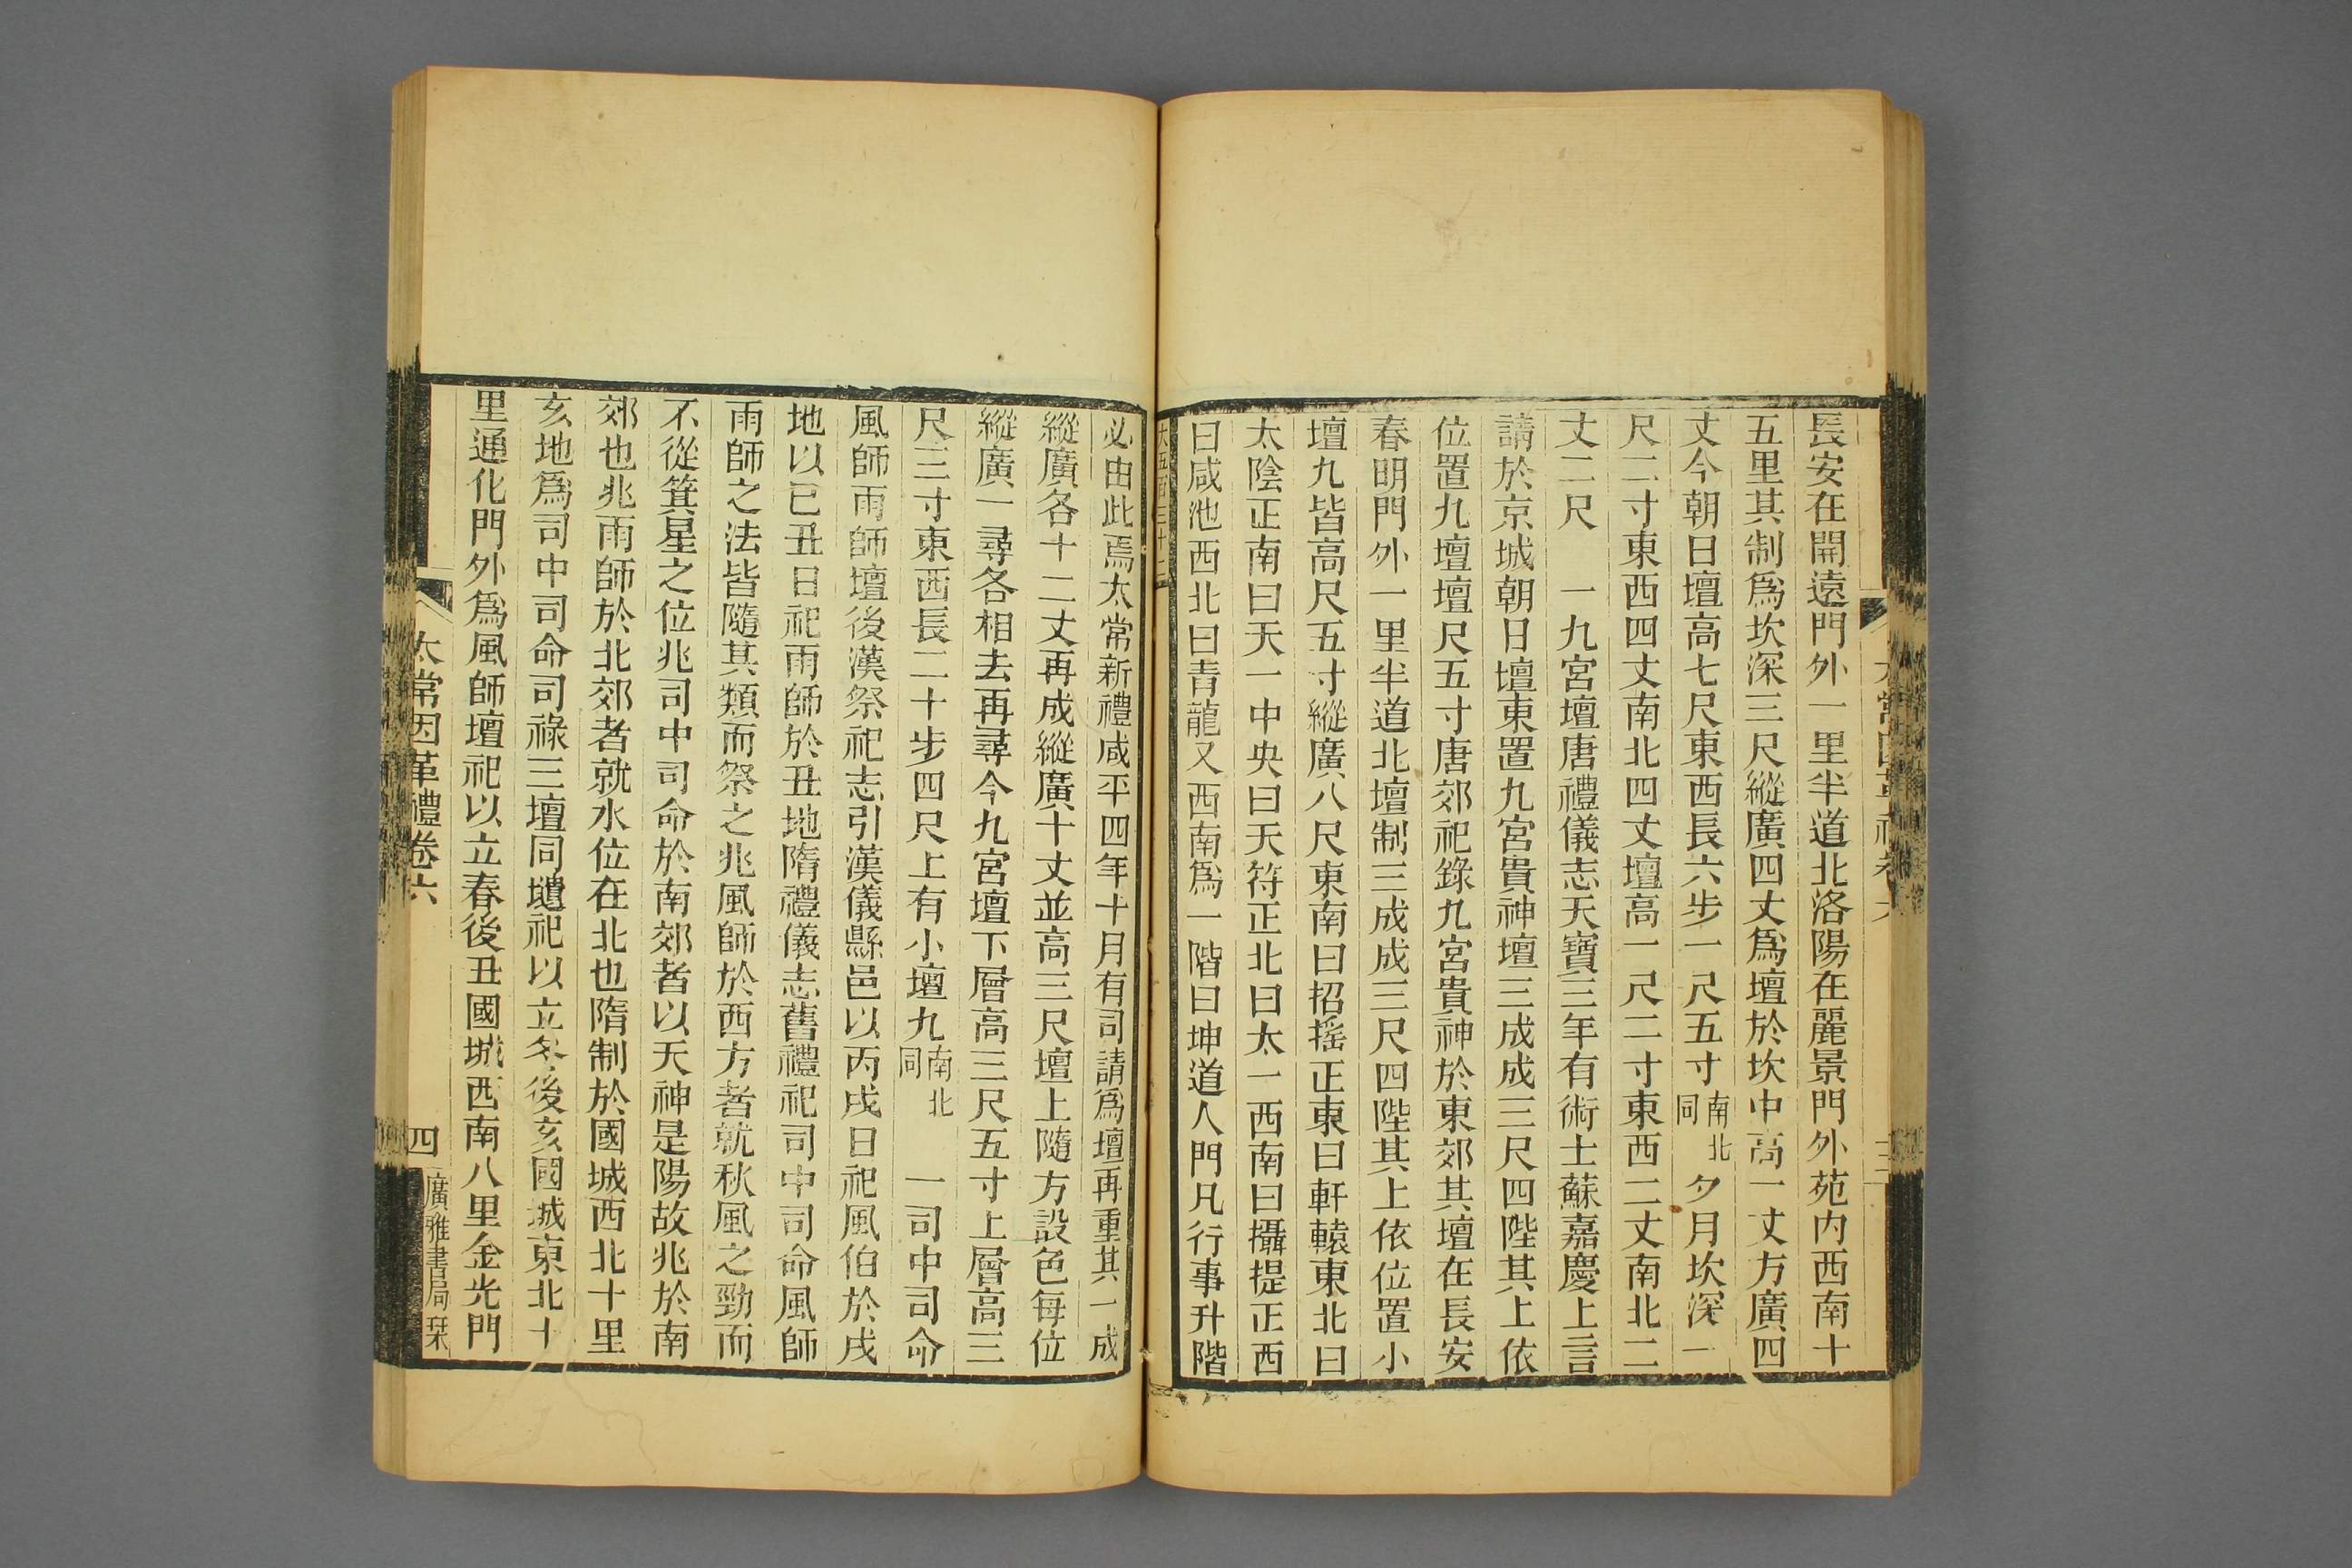 長安在開遠門外一里半道北洛陽在麗景門外苑內西南十
五里其制爲坎深三尺縱廣四丈爲壇於坎中高一丈方廣四
丈今朝日壇高七尺東西長六步一尺五寸南北同夕月坎深一
尺二寸東西四丈南北四丈壇高一尺二寸東西二丈南北二
丈二尺 一九宮壇唐禮儀志天寶三年有術士蘇嘉慶上言
請於京城朝日壇東置九宮貴神壇三成成三尺四陛其上依
位置九壇壇尺五寸唐郊祀錄九宮貴神於東郊其壇在長安
春明門外一里半道北壇制三成成三尺四陛其上依位置小
壇九皆高尺五寸縱廣八尺東南曰招搖正東曰軒轅東北曰
太陰正南曰天一中央曰天符正北曰太一西南曰攝提正西
曰咸池西北曰青龍又西南爲一階曰坤道人門凡行事升階
大五百三十二
必由此焉太常新禮咸平四年十月有司請爲壇再重其一成
縱廣各十二丈再成縱廣十丈並高三尺壇上隨方設色每位
縱廣一尋各相去再尋今九宮壇下層高三尺五寸上層高三
尺三寸東西長二十步四尺上有小壇九南北同 一司中司命
風師雨師壇後漢祭祀志引漢儀縣邑以丙戌日祀風伯於戌
地以己丑日祀雨師於丑地隋禮儀志舊禮祀司中司命風師
雨師之法皆隨其類而祭之兆風師於西方者就秋風之勁而
不從箕星之位兆司中司命於南郊者以天神是陽故兆於南
郊也兆雨師於北郊者就水位在北也隋制於國城西北十里
亥地爲司中司命司祿三壇同壝祀以立冬後亥國城東北十
里通化門外爲風師壇祀以立春後丑國城西南八里金光門
太常因革禮卷六
四
廣雅書局栞